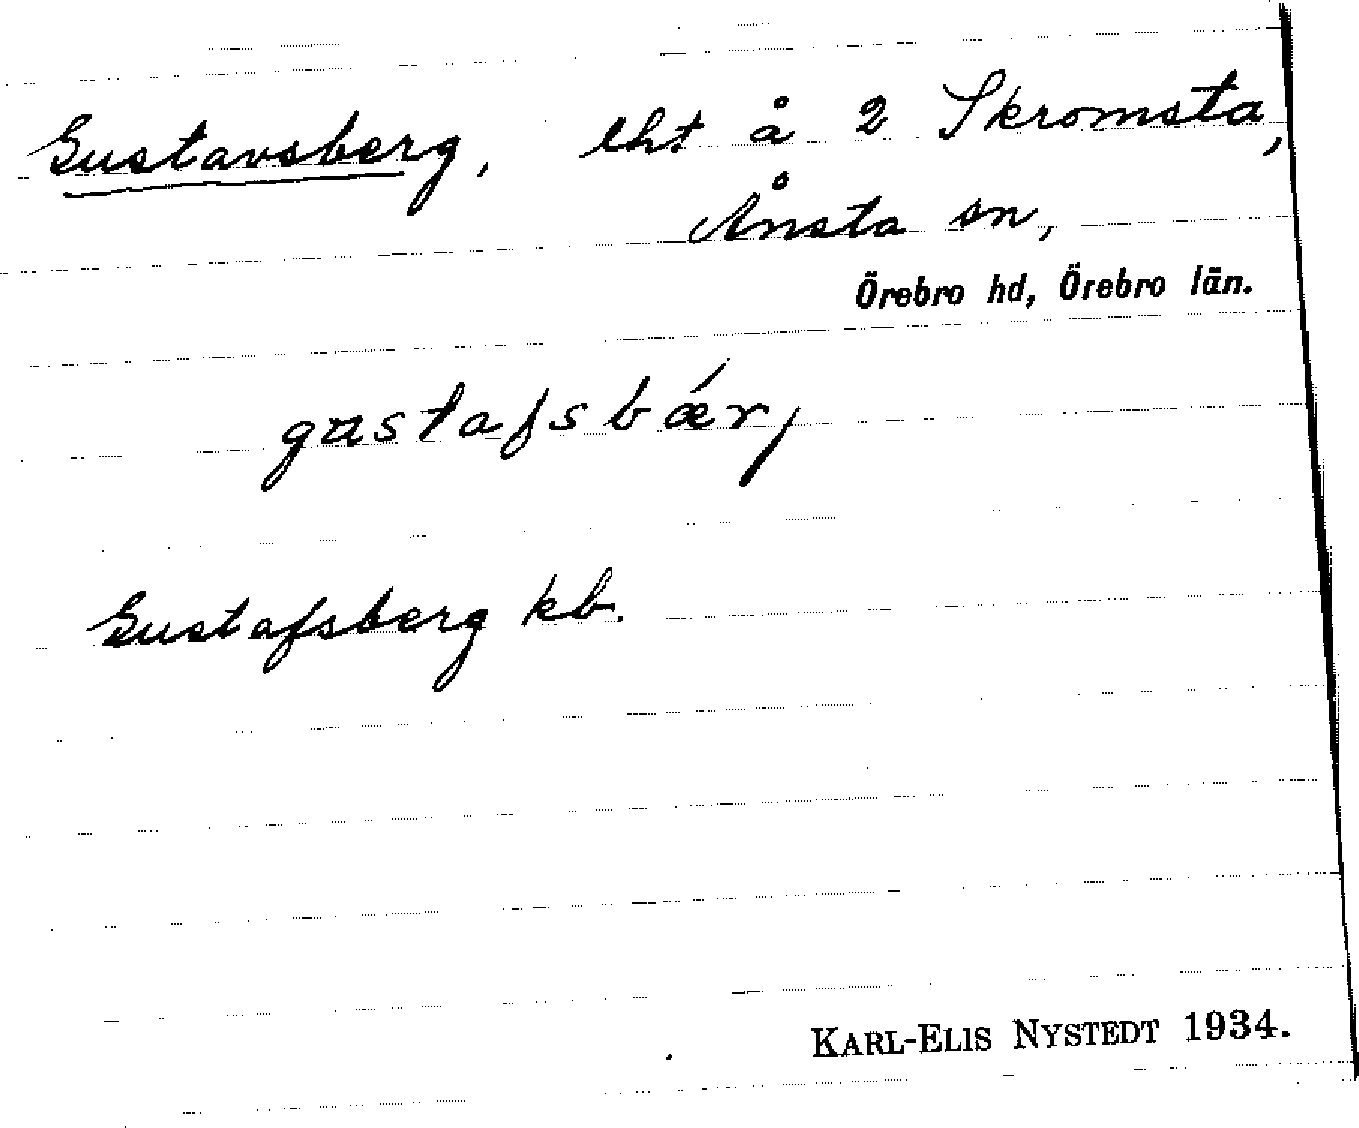 Gustavsberg, lht å 2 Skromsta,
Ånsta sn,
Örebro hd, Örebro län.
gustafsbǽrj
Gustafsberg kb.
KARL-ELIS NYSTEDT 1934.